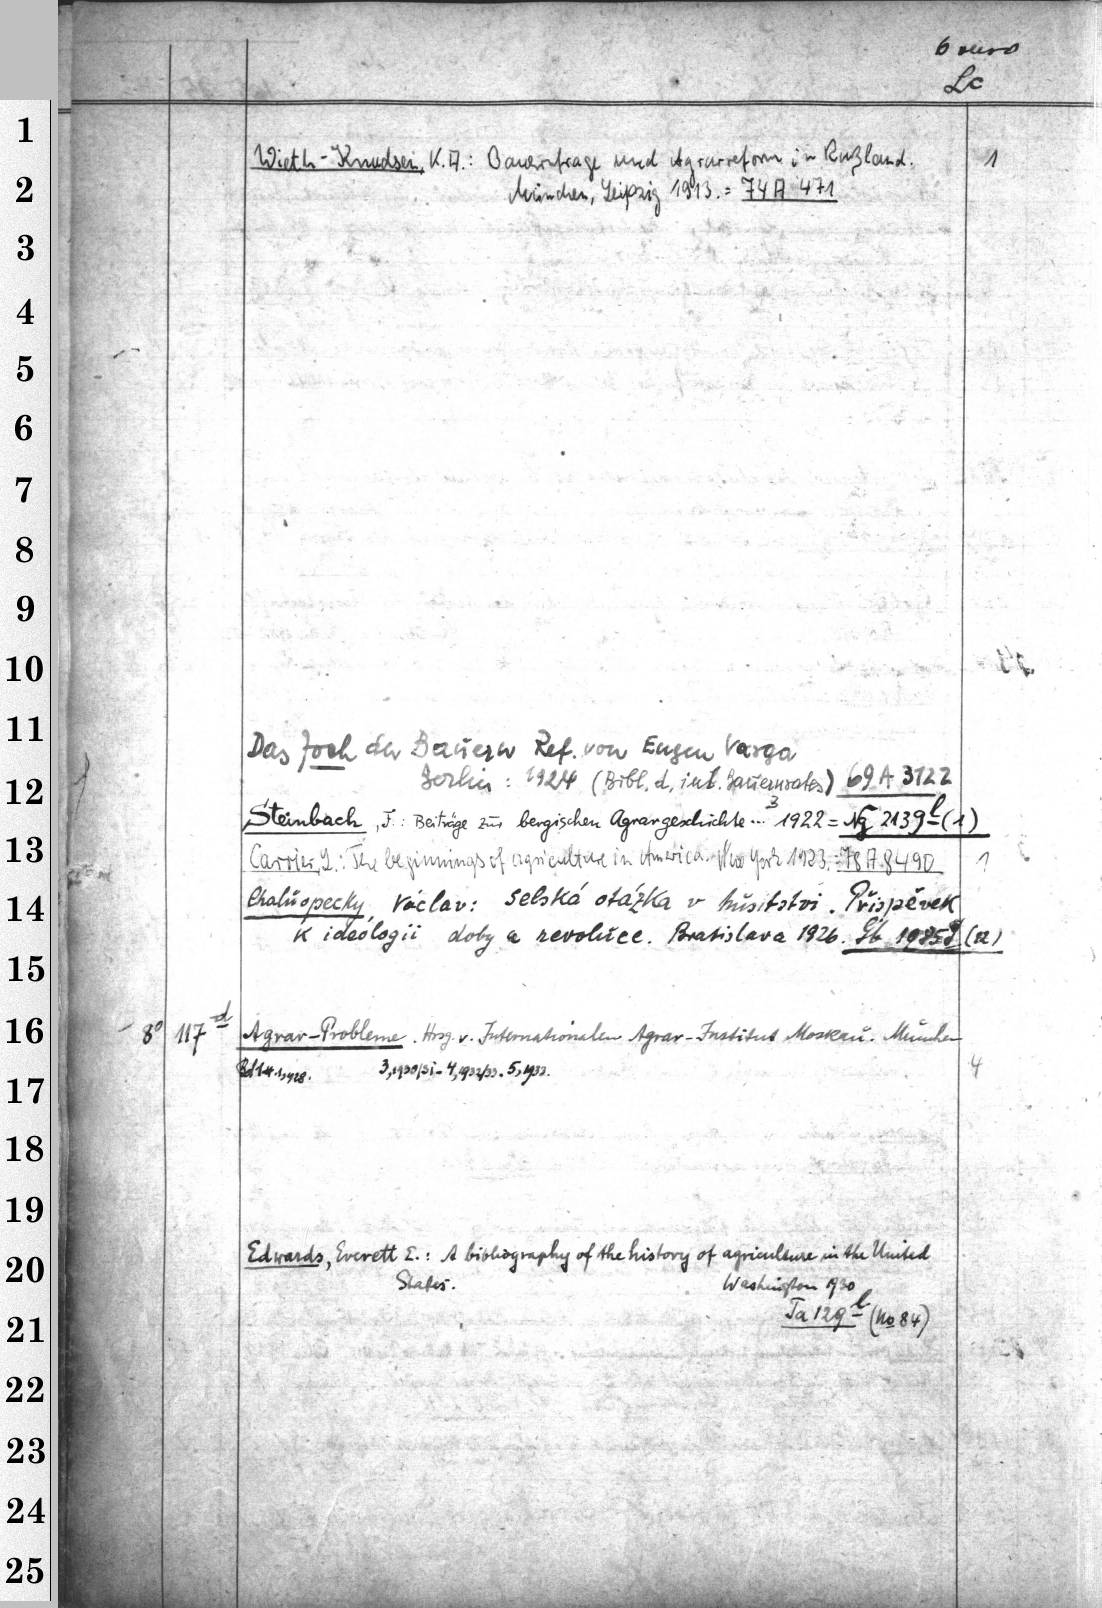 6 verso
Lc
Wieth-Knudsen, K.A.: Bauernfrage und Agrarreform in Rußland. 1
München, Leipzig 1913. = 74 A 471
Das Joch der Bauern Ref. von Eugen Varga
Berlin: 1924 (Bibl. d. int. Bauernrates) 69 A 3122
Steinbach, F.: Beiträge zur bergischen Agrargeschichte... 1922 = Ng 2139 l (1)
Carrier, L.: The beginnings of agriculture in America. New York 1923. = 78 A 8490 1
Chaluopecky, Václav: selská otázka v husitství. Přispěvek
k ideologii doby a revoluce. Bratislava 1926. (12)
8° 117 d Agrar-Probleme. Hrsg. v. Internationalen Agrar-Institut Moskau. München
1,1928. 3,1930/31- 4,1932/33. 5,1933. 4
Edwards, Everett E.: A bibliography of the history of agriculture in the United
States. Washington 1930
Ta 129 l (No 84)
1
2
3
4
5
6
7
8
9
10
11
12
13
14
15
16
17
18
19
20
21
22
23
24
25